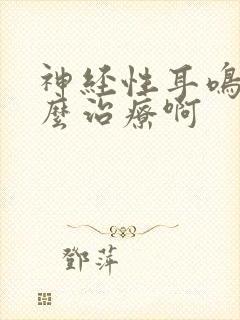 神経性耳鳴
麼治療啊
鄧萍